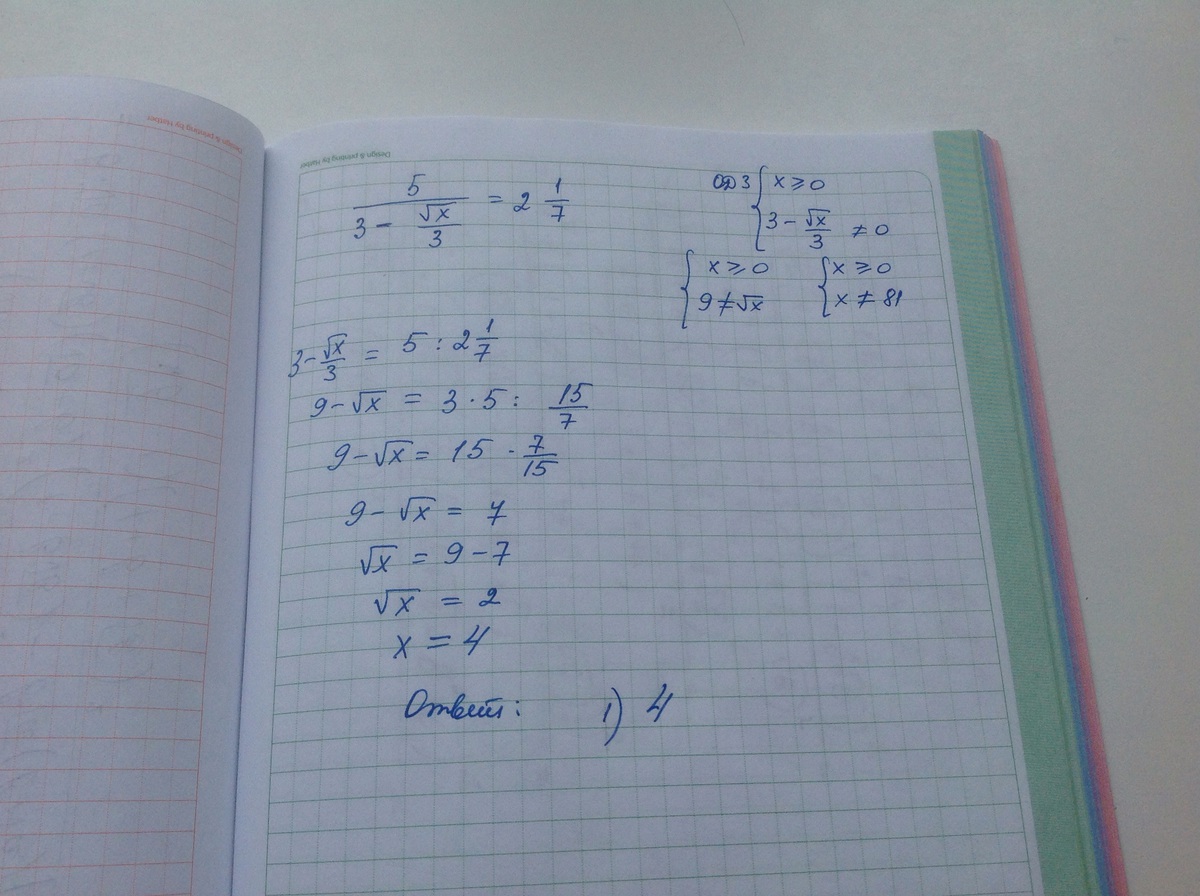 Design & printing by Hatber
Design & printing by Hatber
5 / (3 - √x/3) = 2 1/7
ОДЗ { x ⩾ 0
3 - √x/3 ≠ 0
{ x ⩾ 0
9 ≠ √x
{ x ⩾ 0
x ≠ 81
3 - √x/3 = 5 : 2 1/7
9 - √x = 3 · 5 : 15/7
9 - √x = 15 · 7/15
9 - √x = 7
√x = 9 - 7
√x = 2
x = 4
Ответ: 1) 4